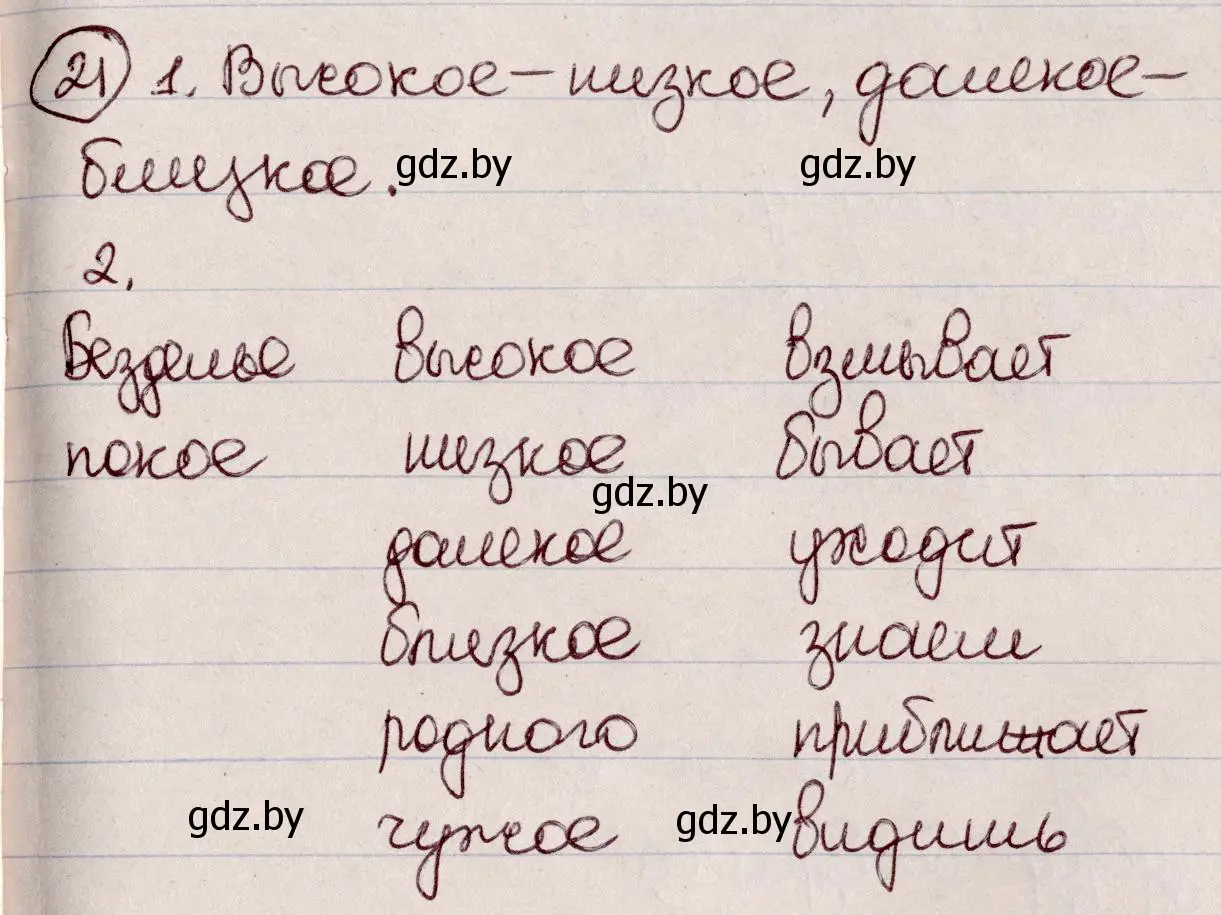 21 1. Высокое – низкое, далекое –
близкое. gdz.by gdz.by
2.
Безделье высокое взмывает
покое низкое бывает
gdz.by
далекое уходит
близкое знаем
родного приближает
gdz.by чужое gdz.by видишь